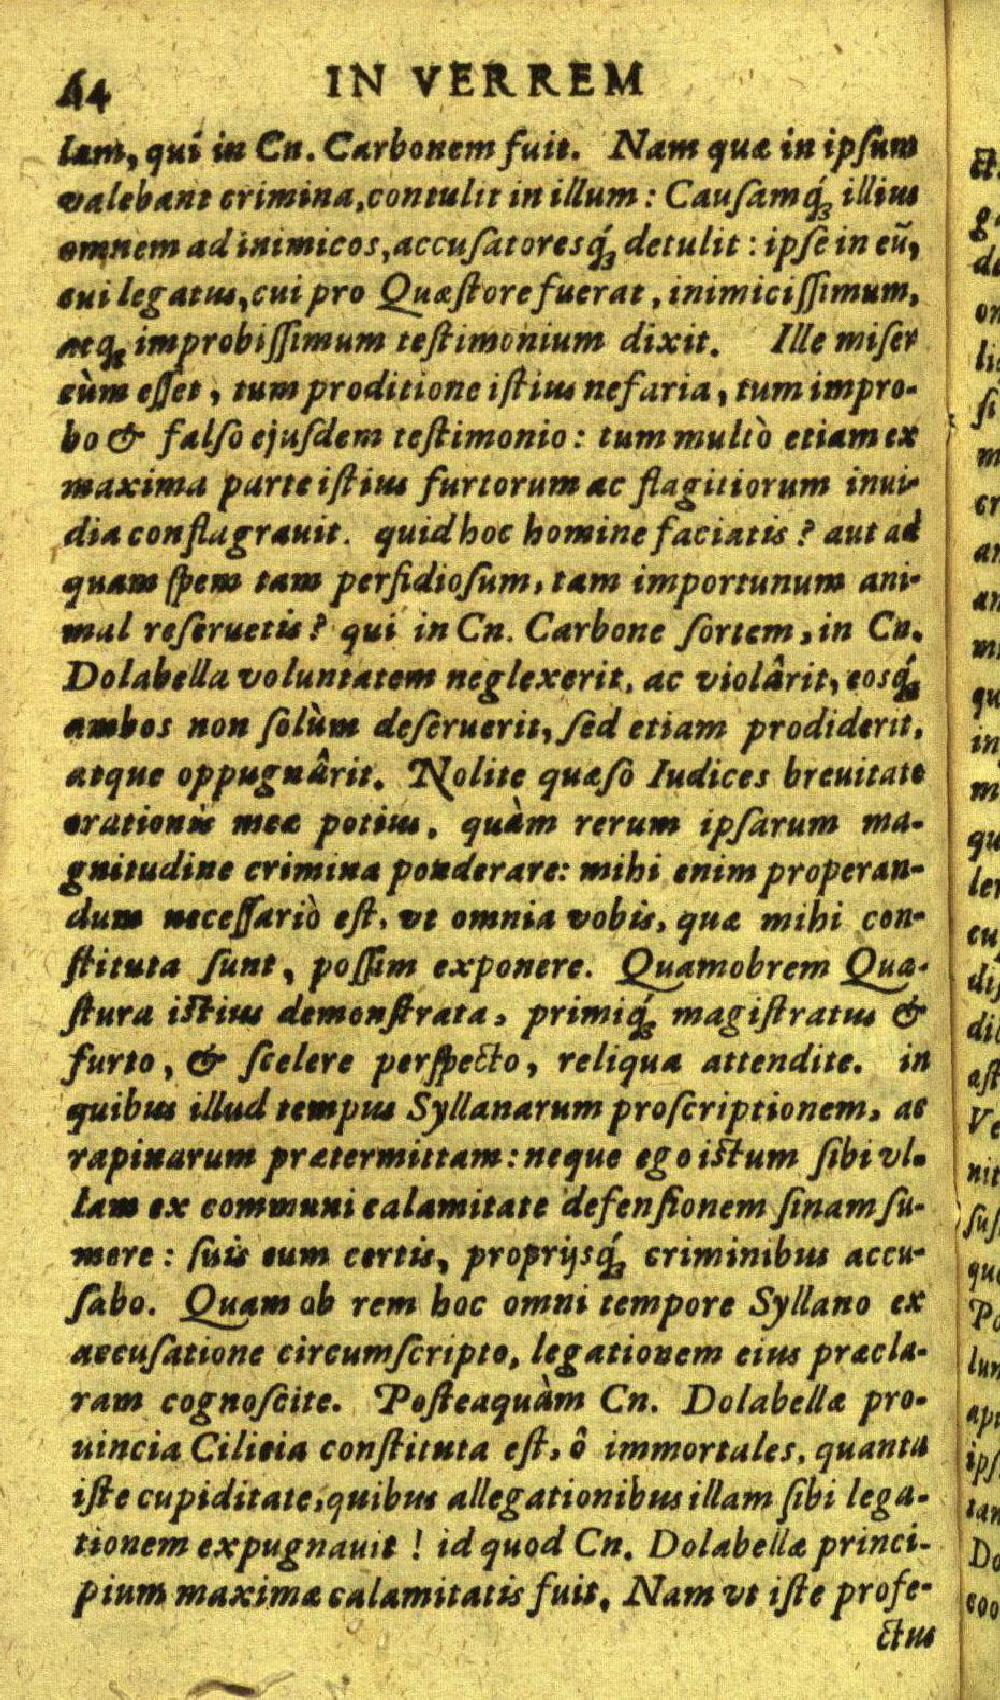 44 IN VERREM
lam, qui in Cn. Carbonem fuit. Nam quæ in ipſum
valebant crimina, contulit in illum: Cauſamq́ꝫ illius
omnem ad inimicos, accuſatoresq́ꝫ detulit: ipſe in eũ,
cui legatus, cui pro Quæſtore fuerat, inimiciſſimum,
atqꝫ improbiſſimum teſtimonium dixit. Ille miſer
cùm eſſet, tum proditione iſtius nefaria, tum impro-
bo & falſo ejuſdem teſtimonio: tum multò etiam ex
maxima parte iſtius furtorum ac flagitiorum inui-
dia conflagrauit. quid hoc homine faciatis? aut ad
quam ſpem tam perfidioſum, tam importunum ani-
mal reſeruetis? qui in Cn. Carbone ſortem, in Cn.
Dolabella voluntatem neglexerit, ac violârit, eosq́ꝫ
ambos non ſolùm deſeruerit, ſed etiam prodiderit,
atque oppugnârit. Nolite quæſo Iudices breuitate
orationis meæ potius, quàm rerum ipſarum ma-
gnitudine crimina ponderare: mihi enim properan-
dum neceſſariò eſt, vt omnia vobis, quæ mihi con-
ſtituta ſunt, poſſim exponere. Quamobrem Quæ-
ſtura iſtius demonſtrata, primiq́ꝫ magiſtratus &
furto, & ſcelere perſpecto, reliqua attendite. in
quibus illud tempus Syllanarum proſcriptionem, ac
rapinarum prætermittam: neque ego iſtum ſibi vl-
lam ex communi calamitate defenſionem ſinam ſu-
mere: ſuis eum certis, proprijsq́ꝫ criminibus accu-
ſabo. Quam ob rem hoc omni tempore Syllano ex
accuſatione circumſcripto, legationem eius præcla-
ram cognoſcite. Poſteaquàm Cn. Dolabellæ pro-
uincia Cilicia conſtituta eſt, ô immortales, quanta
iſte cupiditate, quibus allegationibus illam ſibi lega-
tionem expugnauit! id quod Cn. Dolabellæ princi-
pium maximæ calamitatis fuit. Nam vt iſte profe-
ctus